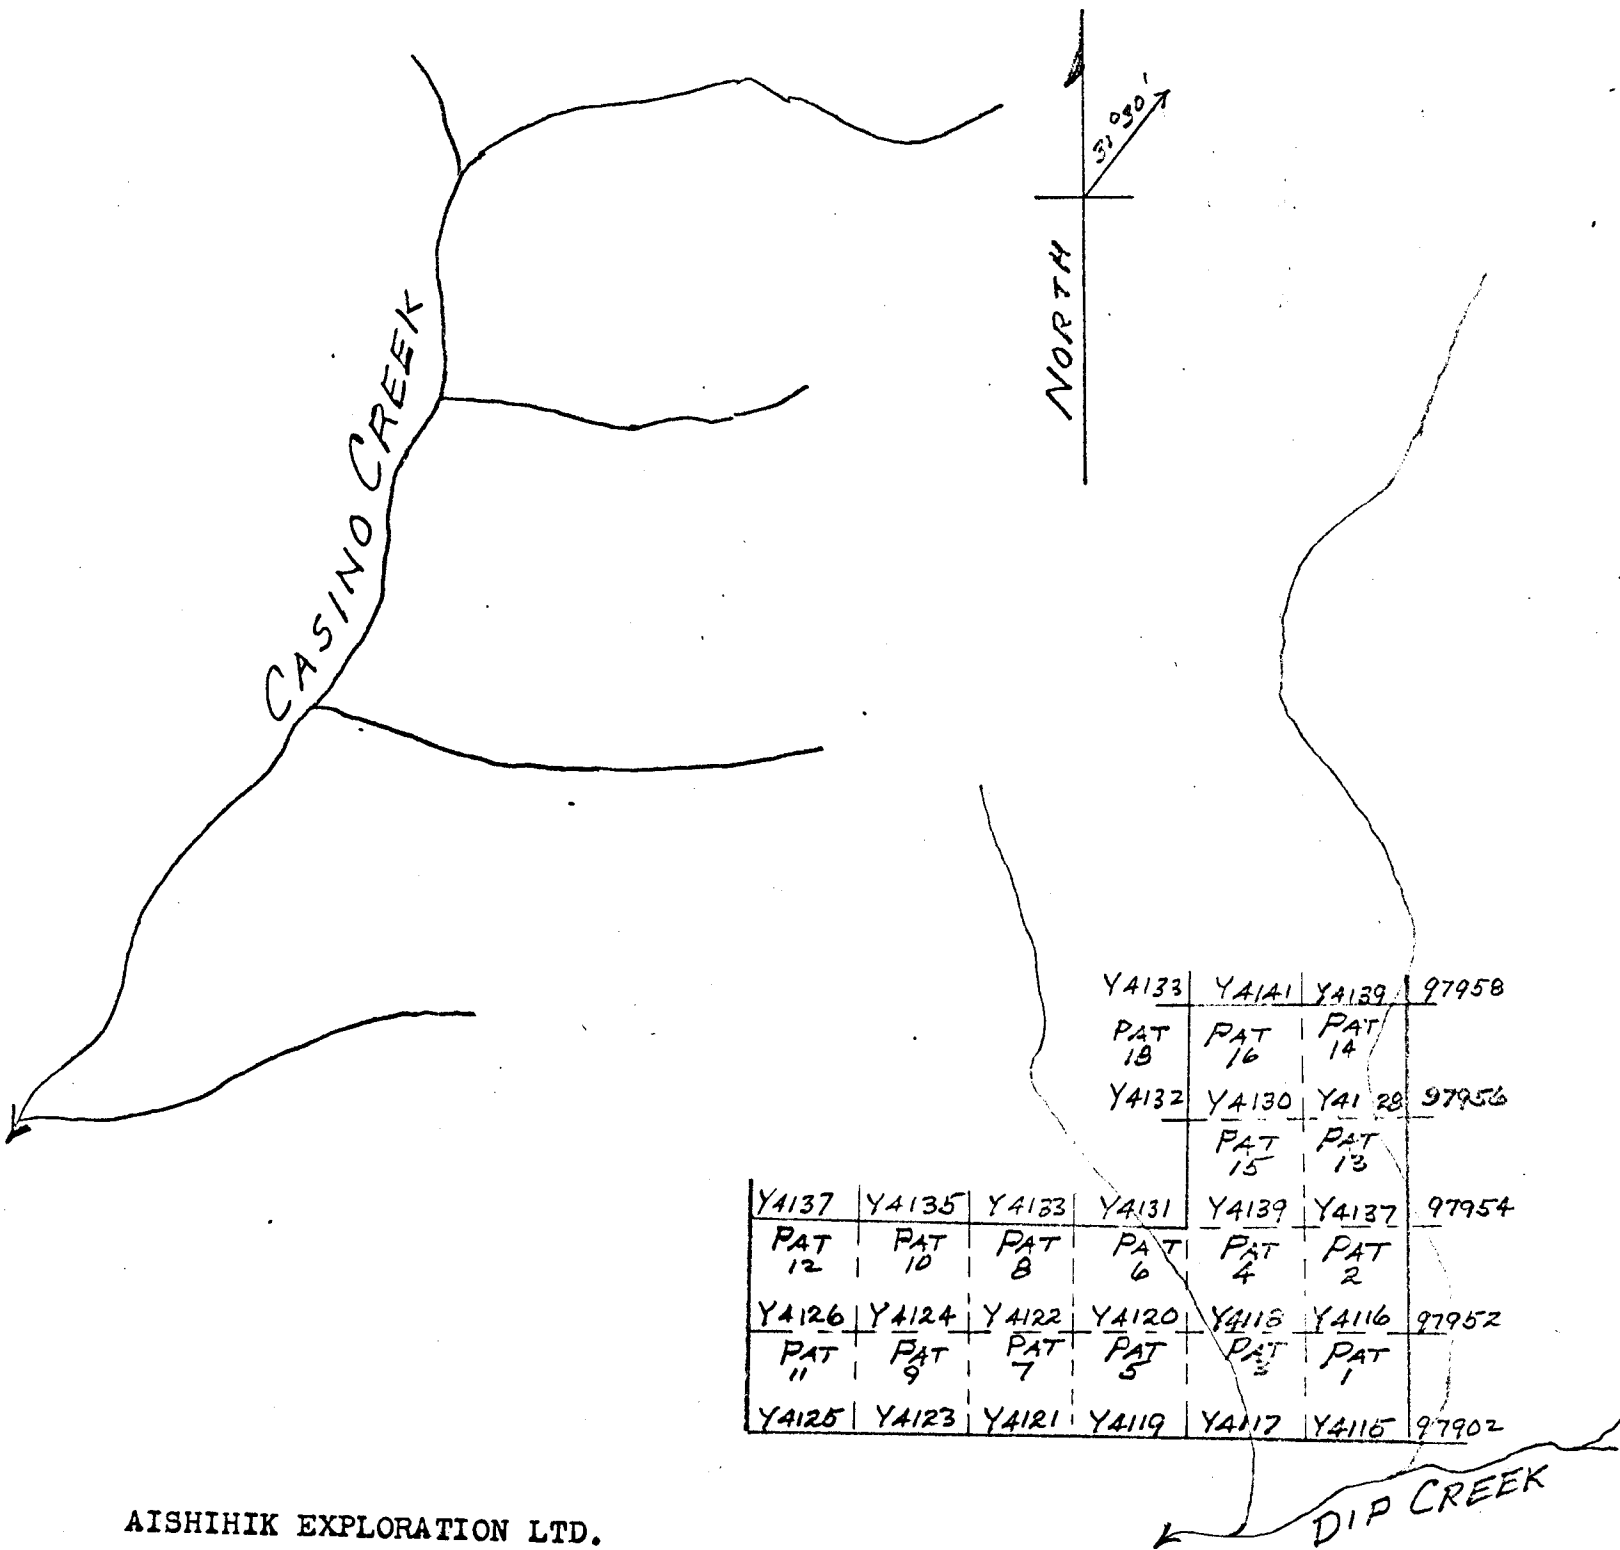 31°30'
NORTH
CASINO CREEK
Y4133 Y4141 Y4139 97958
PAT 18 PAT 16 PAT 14
Y4132 Y4130 Y4128 97956
PAT 15 PAT 13
Y4137 Y4135 Y4133 Y4131 Y4139 Y4137 97954
PAT 12 PAT 10 PAT 8 PAT 6 PAT 4 PAT 2
Y4126 Y4124 Y4122 Y4120 Y4118 Y4116 97952
PAT 11 PAT 9 PAT 7 PAT 5 PAT 3 PAT 1
Y4125 Y4123 Y4121 Y4119 Y4117 Y4115 97902
DIP CREEK
AISHIHIK EXPLORATION LTD.